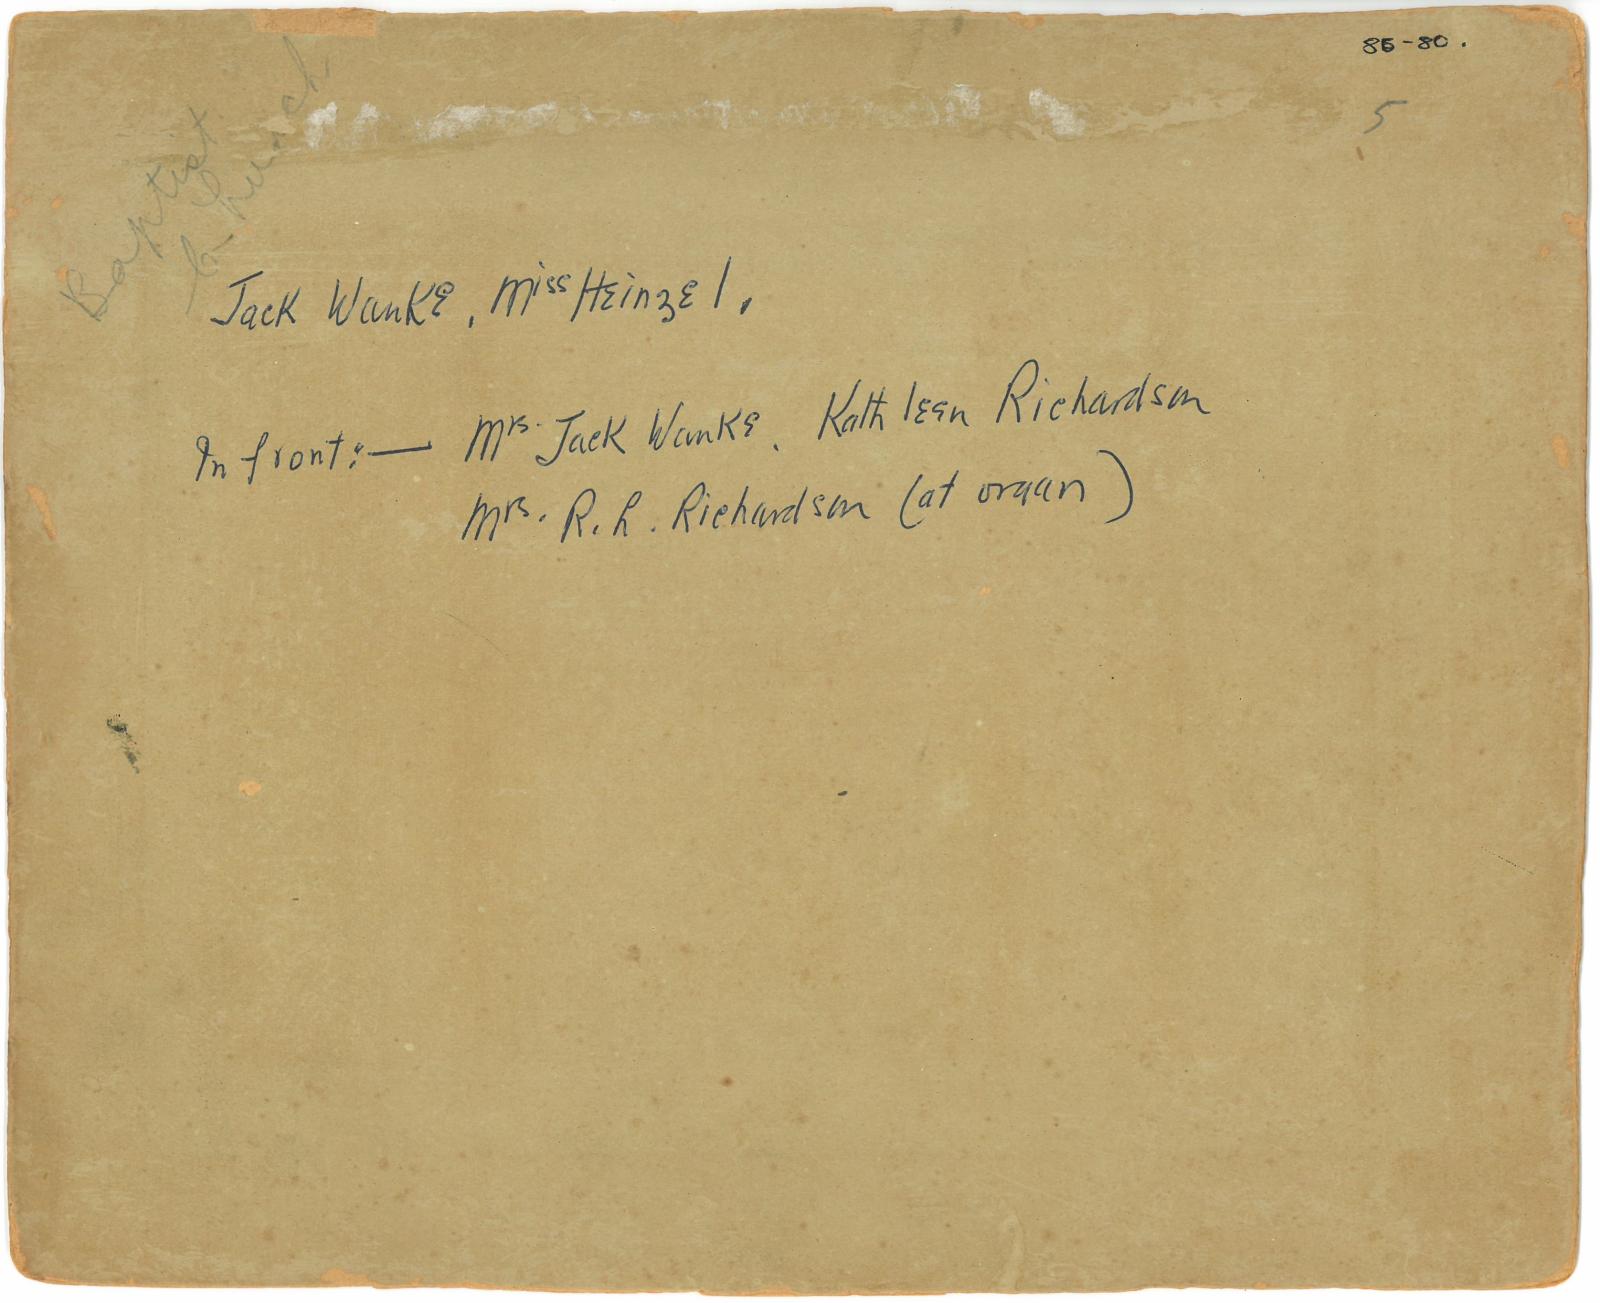 85-80.
5
Baptist
Church
Jack Wanke, Miss Heinzel.
In front:— Mrs. Jack Wanke, Kathleen Richardson
Mrs. R. L. Richardson (at organ)